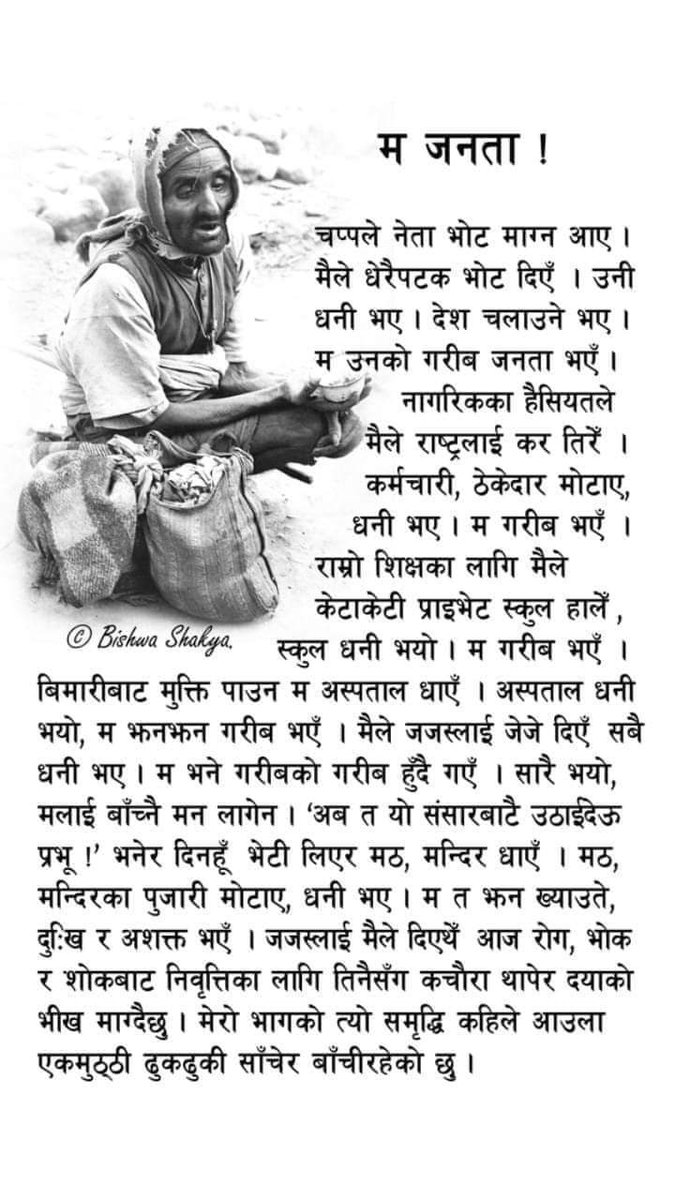 म जनता !
चप्पले नेता भोट माग्न आए ।
मैले धेरैपटक भोट दिएँ । उनी
धनी भए । देश चलाउने भए ।
म उनको गरीब जनता भएँ ।
नागरिकका हैसियतले
मैले राष्ट्रलाई कर तिरेँ ।
कर्मचारी, ठेकेदार मोटाए,
धनी भए । म गरीब भएँ ।
राम्रो शिक्षका लागि मैले
केटाकेटी प्राइभेट स्कुल हालेँ ,
© Bishwa Shakya.
स्कुल धनी भयो । म गरीब भएँ ।
बिमारीबाट मुक्ति पाउन म अस्पताल धाएँ । अस्पताल धनी
भयो, म झनझन गरीब भएँ । मैले जजस्लाई जेजे दिएँ सबै
धनी भए । म भने गरीबको गरीब हुँदै गएँ । सारै भयो,
मलाई बाँच्नै मन लागेन । ‘अब त यो संसारबाटै उठाईदेऊ
प्रभू !’ भनेर दिनहूँ भेटी लिएर मठ, मन्दिर धाएँ । मठ,
मन्दिरका पुजारी मोटाए, धनी भए । म त झन ख्याउते,
दुःखि र अशक्त भएँ । जजस्लाई मैले दिएथेँ आज रोग, भोक
र शोकबाट निवृत्तिका लागि तिनैसँग कचौरा थापेर दयाको
भीख माग्दैछु । मेरो भागको त्यो समृद्धि कहिले आउला
एकमुठ्ठी ढुकढुकी साँचेर बाँचीरहेको छु ।